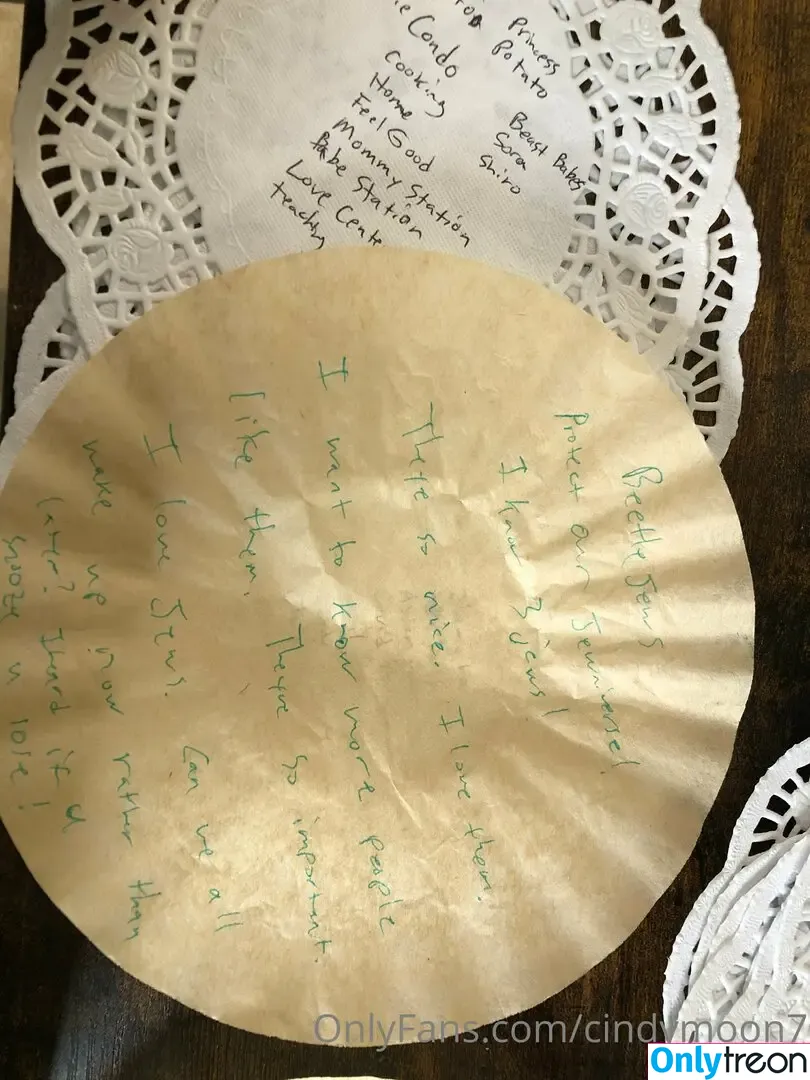 Princess
Potato
Condo
Cooking
Home
Feel Good
Mommy Station
Babe Station
Love Cente
Beast Babes
Sora
Shiro
BeetleJews
Protect our Jewniverse!
I know 3 jews!
There so nice. I love them.
I want to know more people
like them. Theyre so important.
I love Jews. Can we all
wake up now rather than
later? I heard if u
snooze u lose!
OnlyFans.com/cindymoon7
Onlytreon